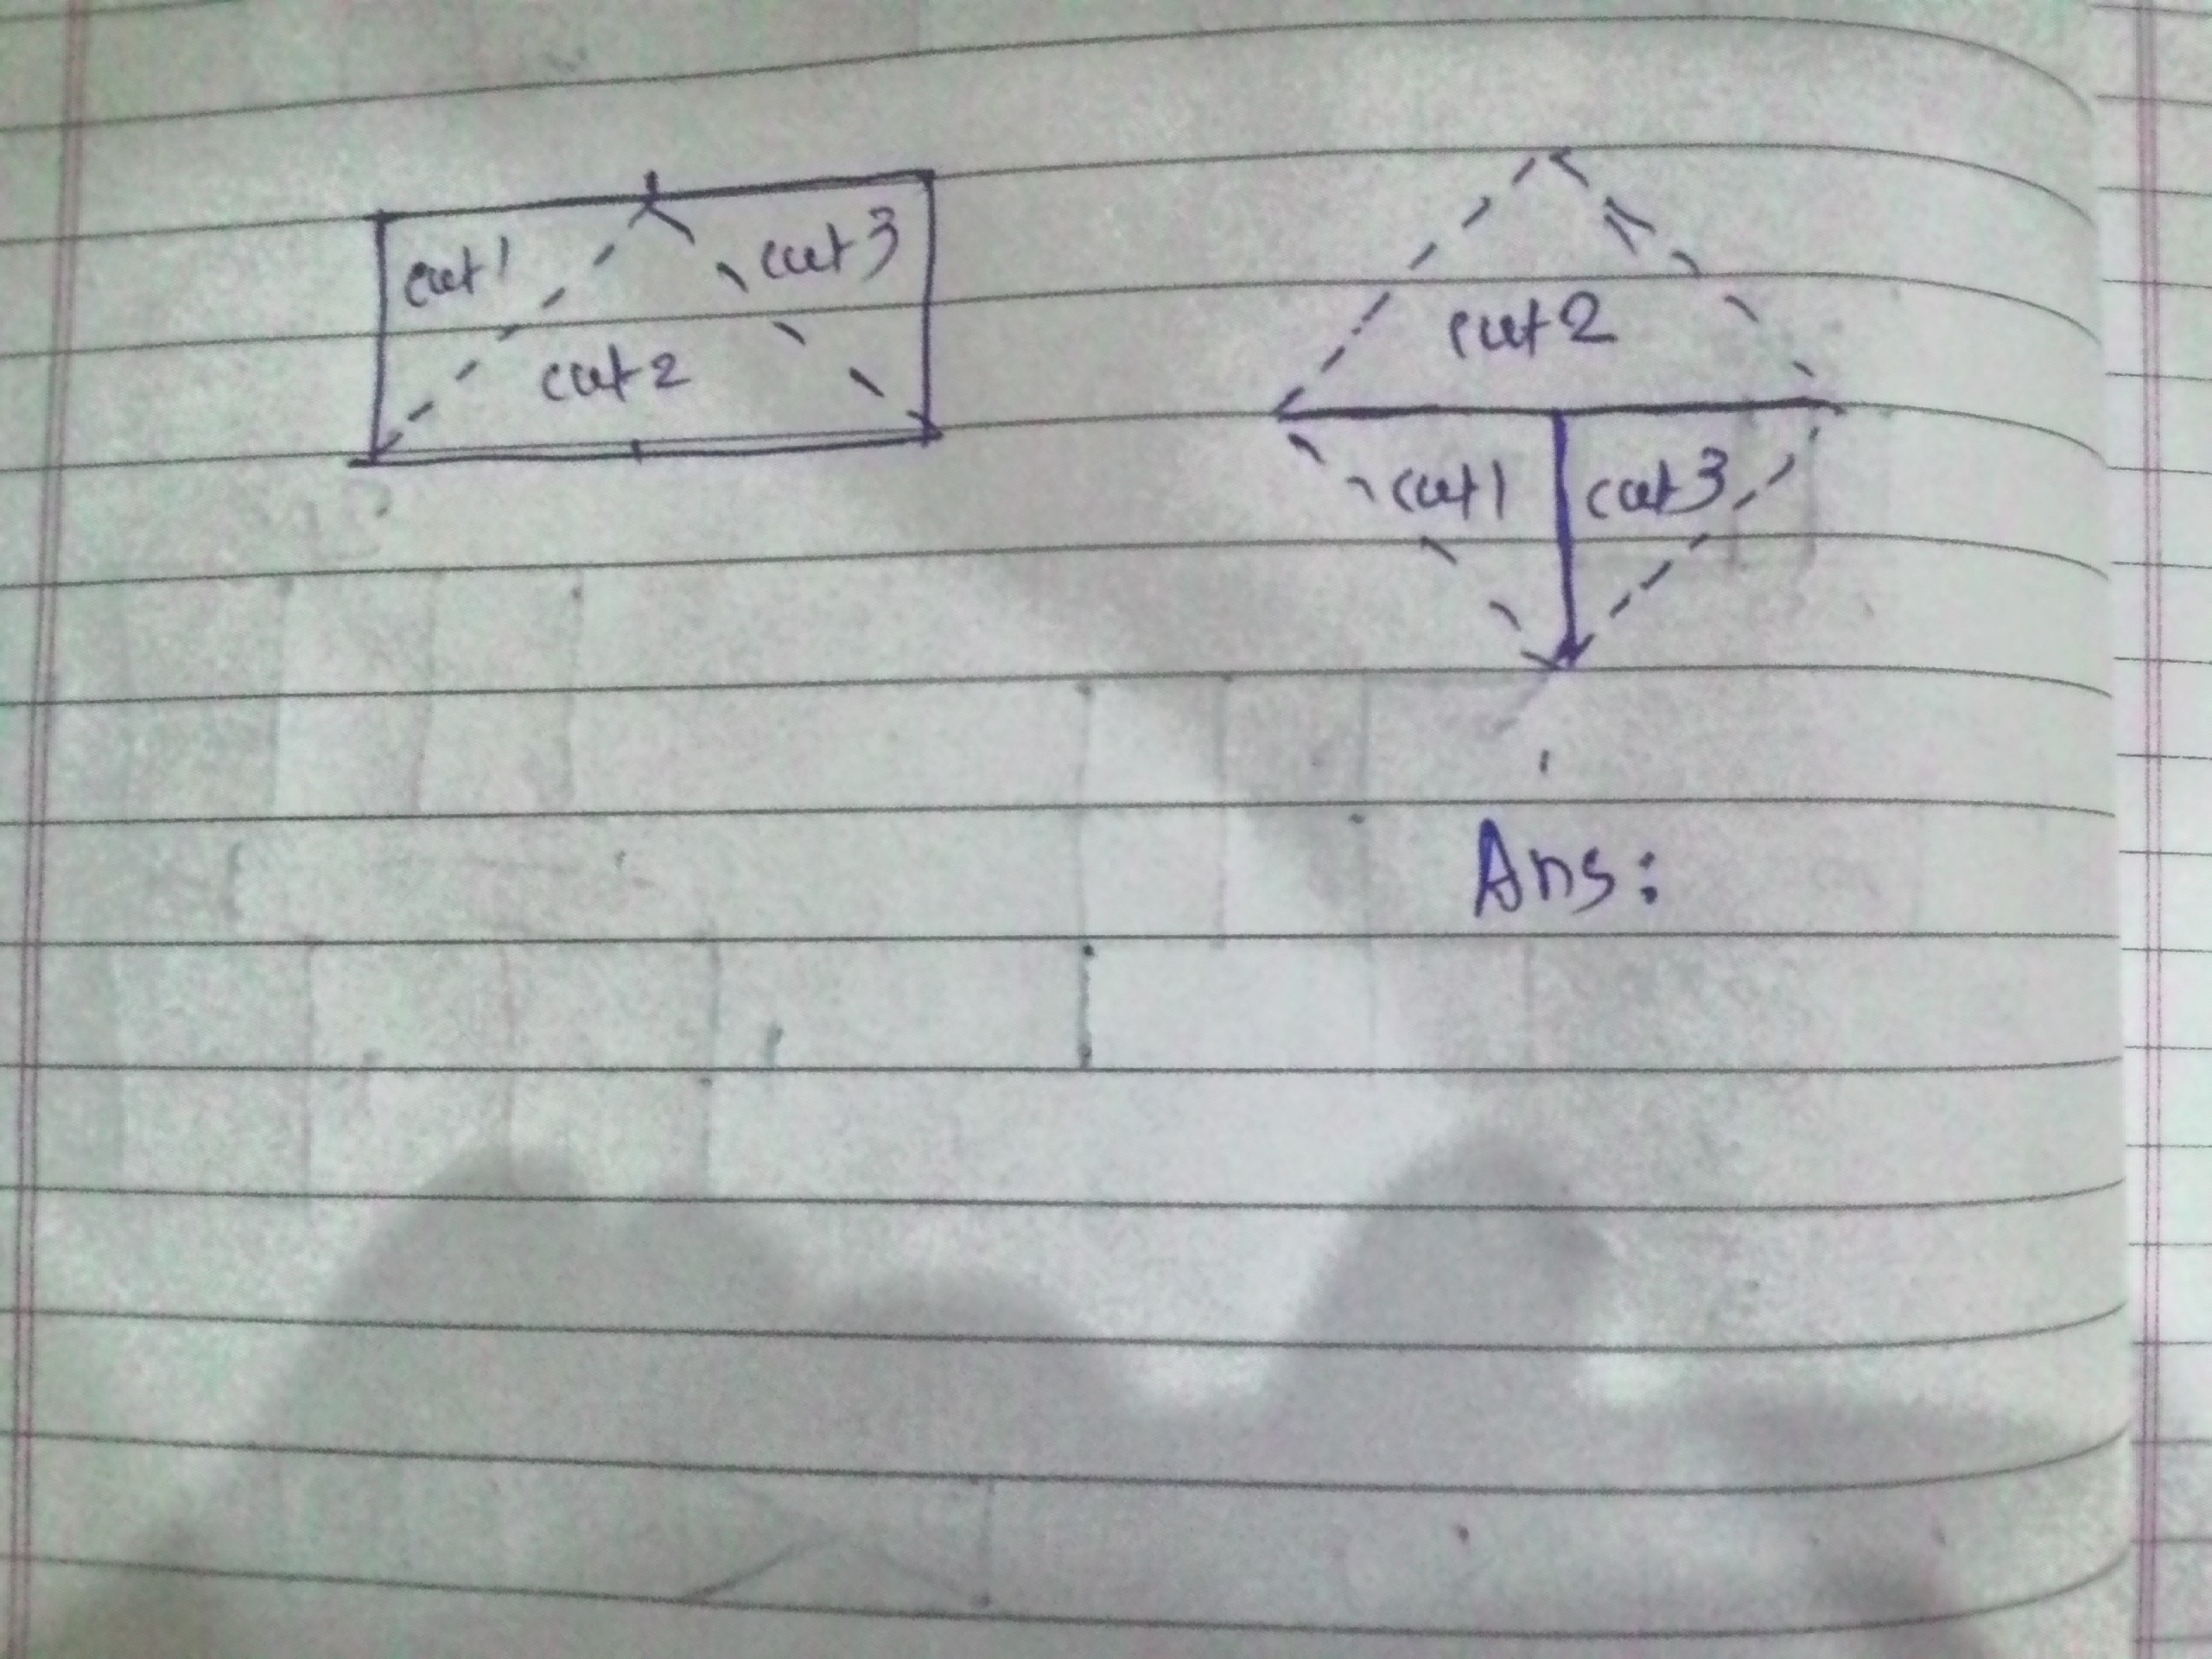 cut 1
cut 3
cut 2
cut 2
cut 1
cut 3
Ans: